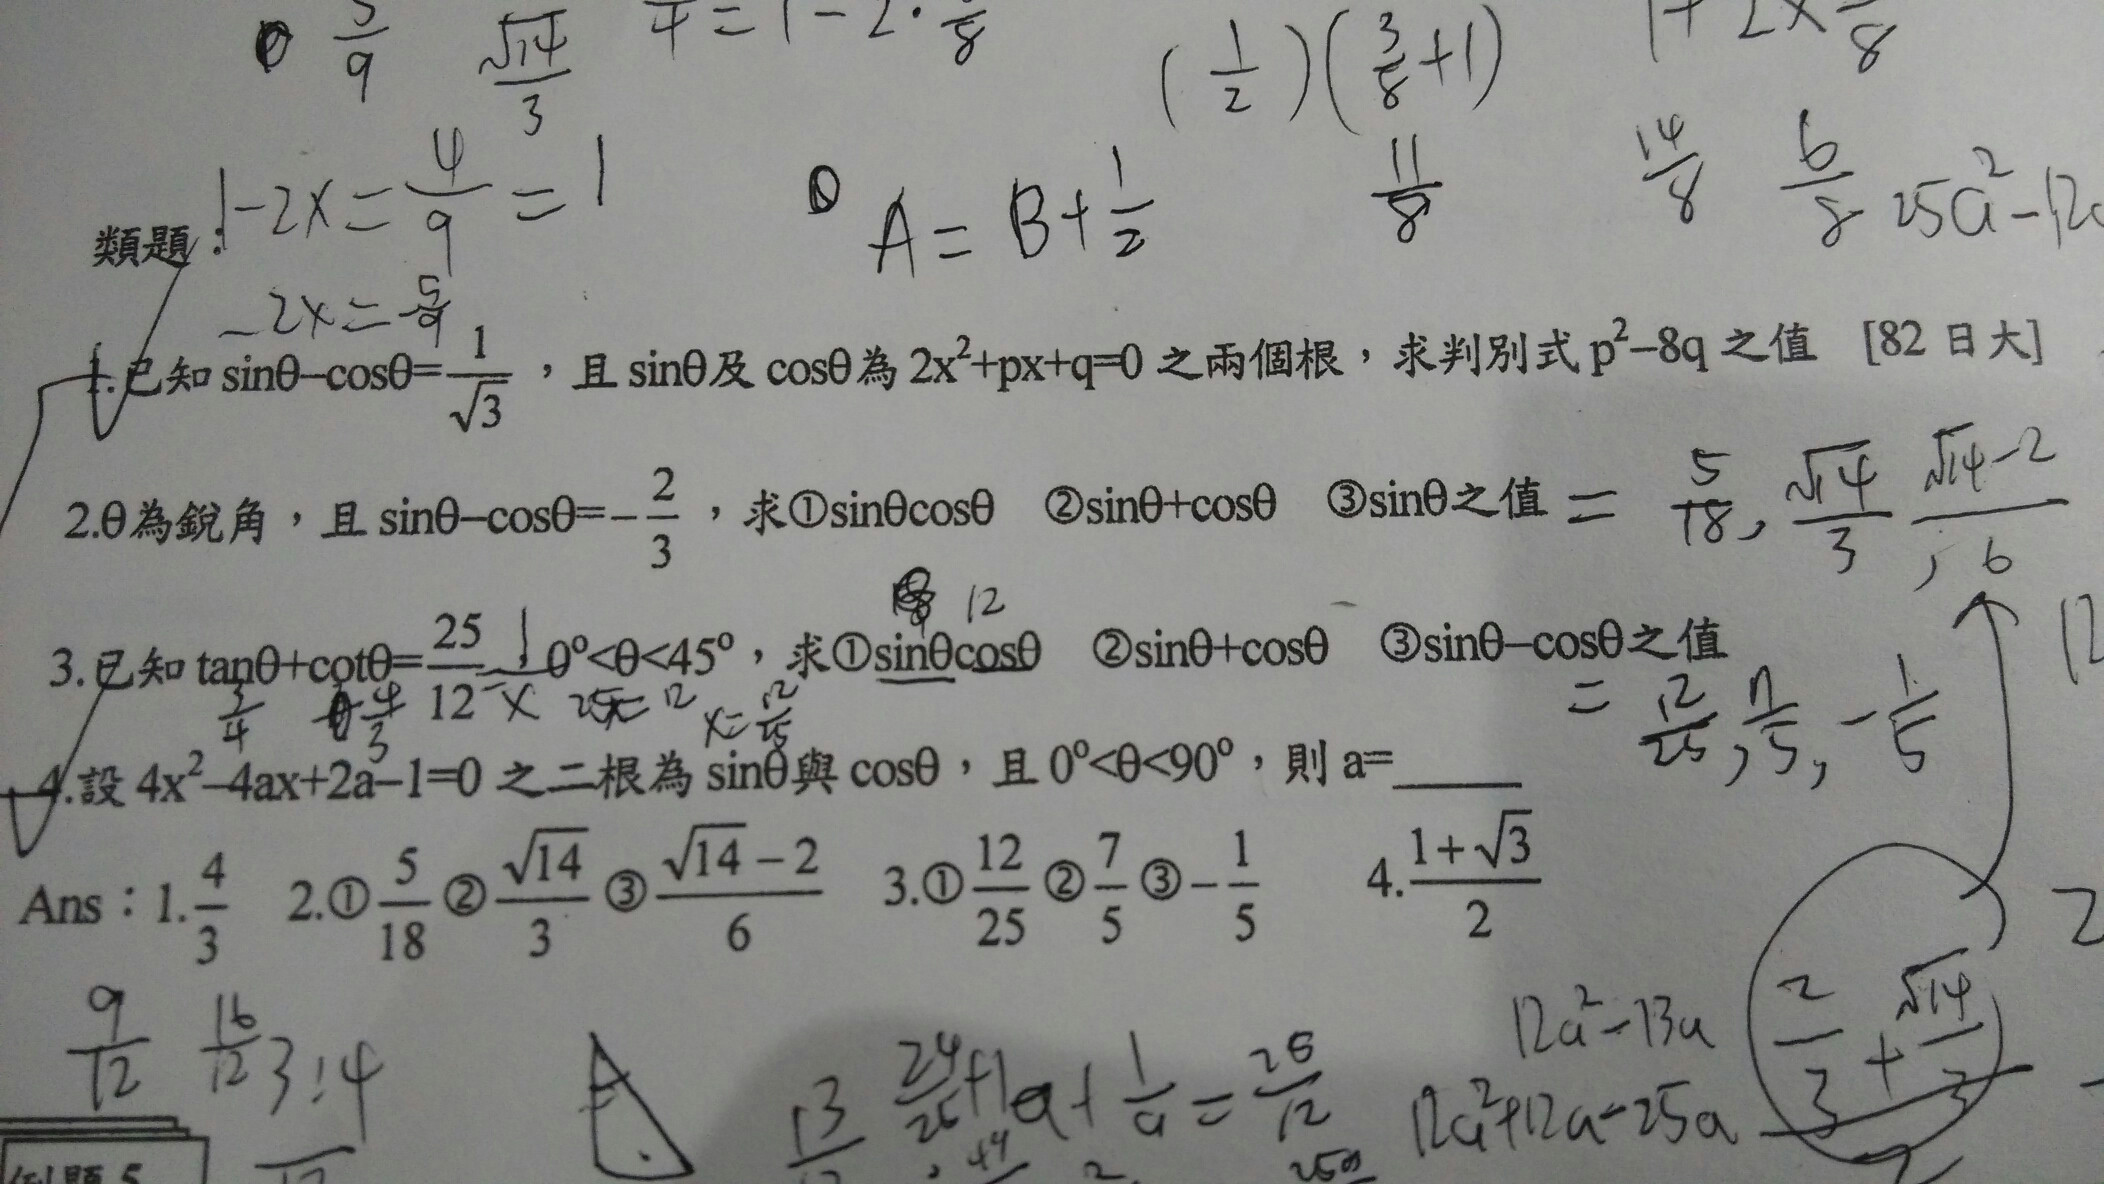 √14/3
(1/2)(3/8+1)
1-2x=4/9=1
A=B+1/2
11/8
14/8
6/8
類題:
-2x=-5/9
1.已知 sinθ–cosθ=1/√3,且 sinθ及 cosθ為 2x²+px+q=0 之兩個根,求判別式 p²–8q 之值 [82 日大]
2.θ為銳角,且 sinθ–cosθ=–2/3,求①sinθcosθ ②sinθ+cosθ ③sinθ之值 = 5/18, √14/3, √14-2/6
12
3.已知 tanθ+cotθ=25/12,0º<θ<45º,求①sinθcosθ ②sinθ+cosθ ③sinθ–cosθ之值
= 12/25, 7/5, -1/5
3/4 4/3 x=12/25
4.設 4x²–4ax+2a–1=0 之二根為 sinθ與 cosθ,且 0º<θ<90º,則 a=______
Ans:1.4/3 2.①5/18②√14/3③√14–2/6 3.①12/25②7/5③–1/5 4.1+√3/2
9/12 16/12 3:4
12a²-13a
2/3+√14/3
a+1/a=25/12
12a²+12a-25a
例題 5